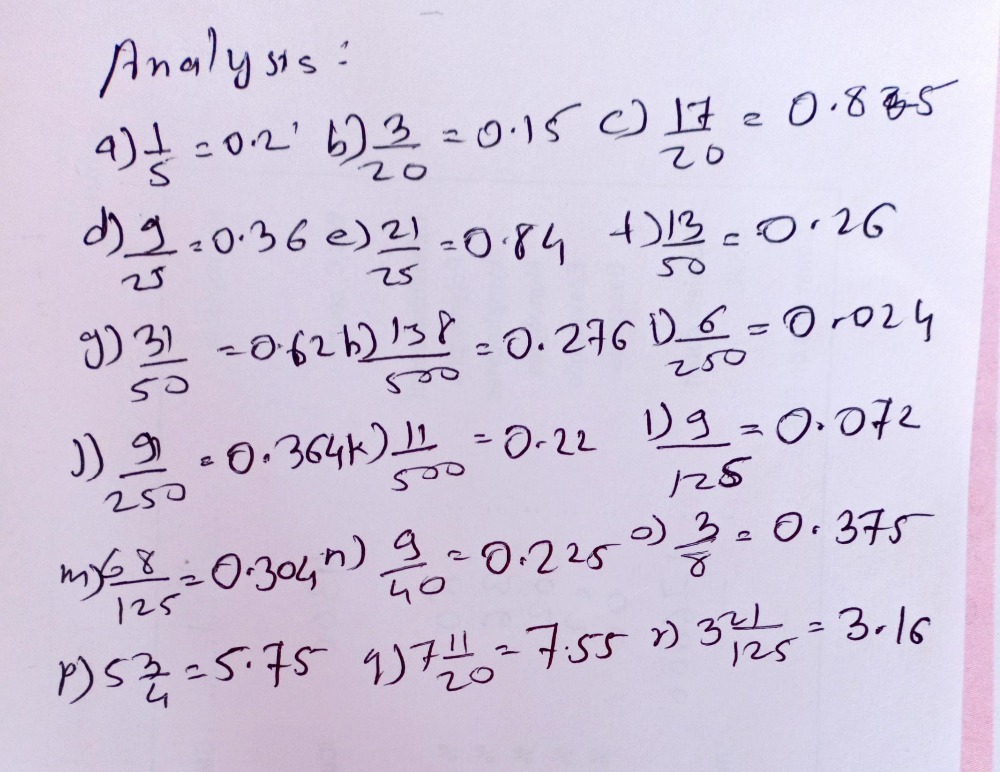 Analysis:
a) 1/5 = 0.2 b) 3/20 = 0.15 c) 17/20 = 0.835
d) 9/25 = 0.36 e) 21/25 = 0.84 f) 13/50 = 0.26
g) 31/50 = 0.62 h) 138/500 = 0.276 i) 6/250 = 0.024
j) 91/250 = 0.364 k) 11/500 = 0.22 l) 9/125 = 0.072
m) 68/125 = 0.304 n) 9/40 = 0.225 o) 3/8 = 0.375
p) 5 3/4 = 5.75 q) 7 11/20 = 7.55 r) 3 21/125 = 3.16